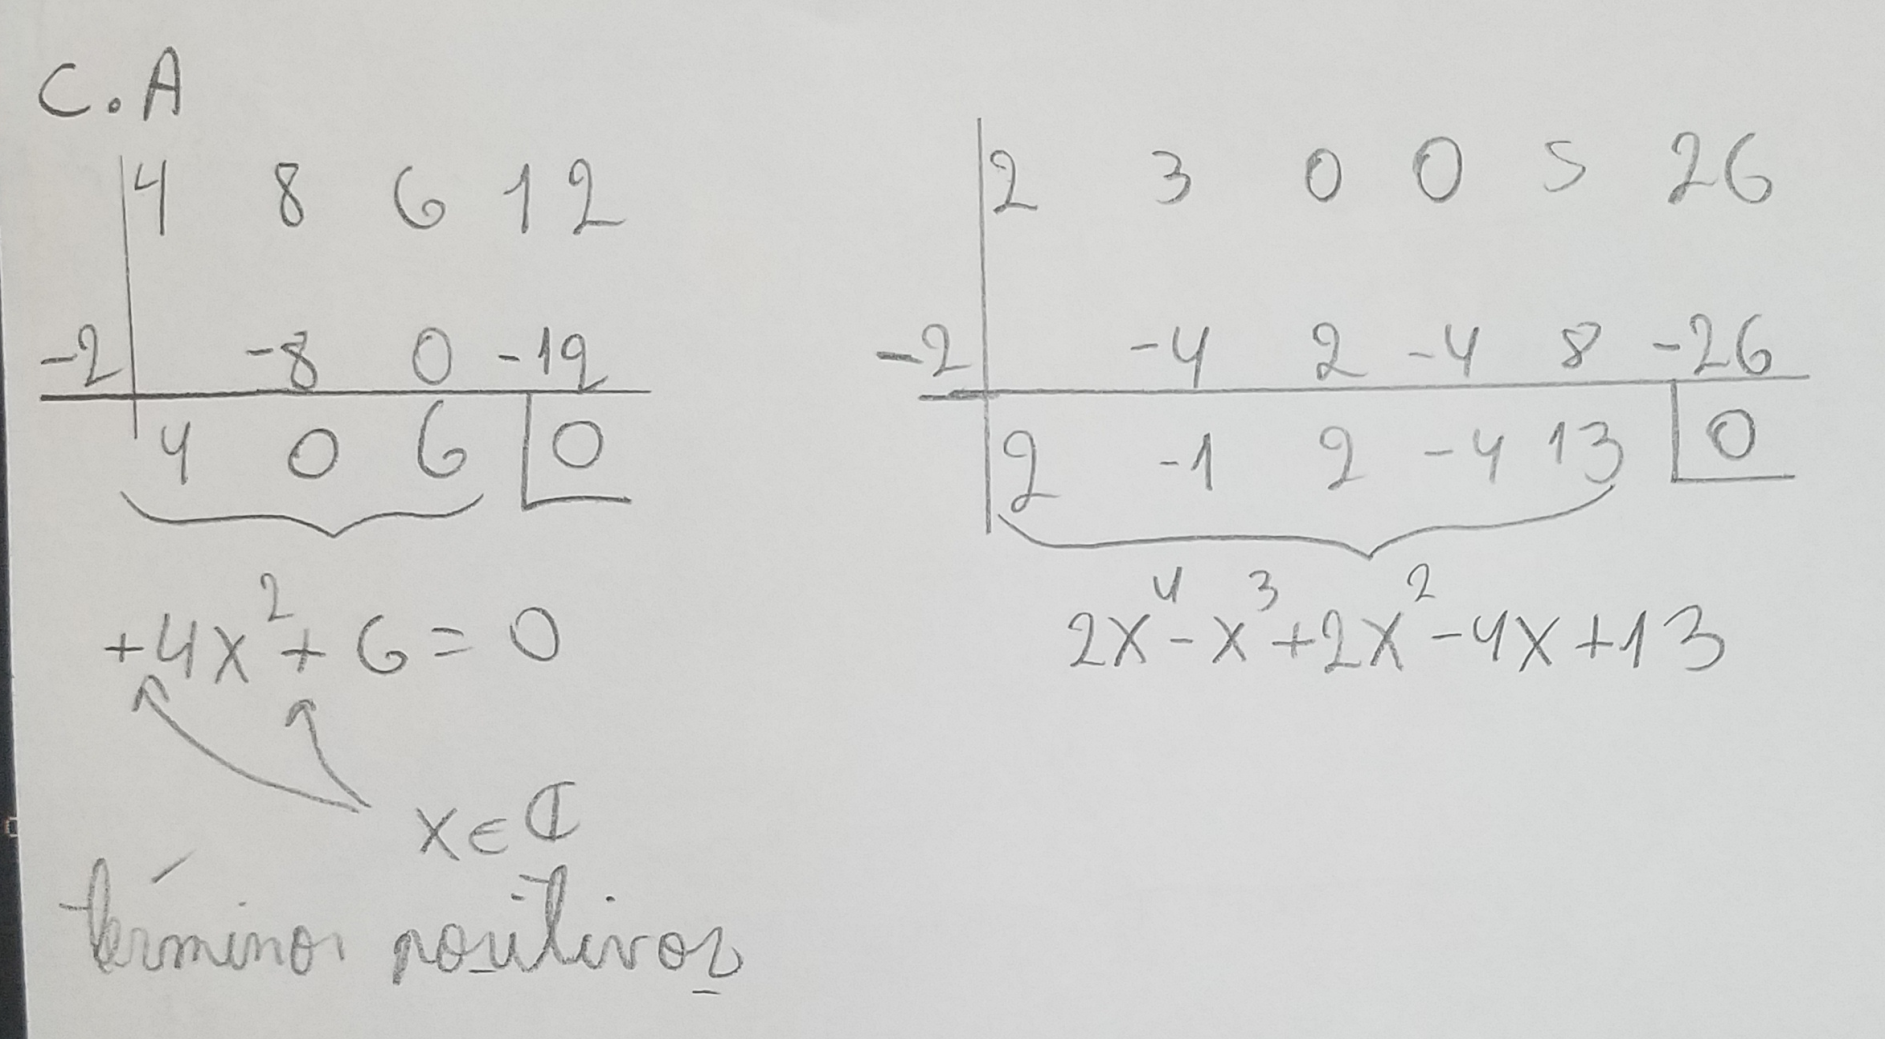 C.A
4 8 6 12
-2 -8 0 -12
4 0 6 0
+4x²+6=0
x∈ℂ
términos positivos
2 3 0 0 5 26
-2 -4 2 -4 8 -26
2 -1 2 -4 13 0
2x⁴-x³+2x²-4x+13